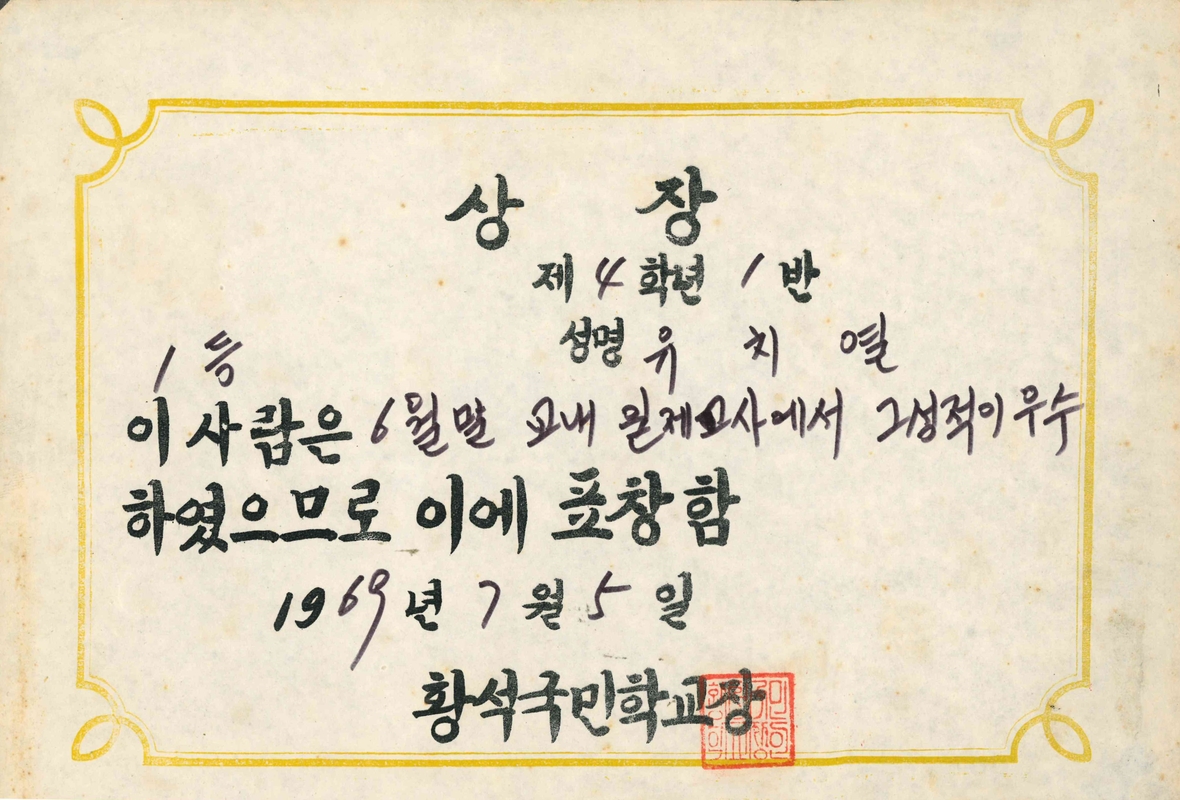 상 장
제 4 학년 1 반
성명 유 치 열
1 등
이 사람은 6월말 교내 일제고사에서 그성적이 우수
하였으므로 이에 표창함
1969년 7월 5일
황석국민학교장